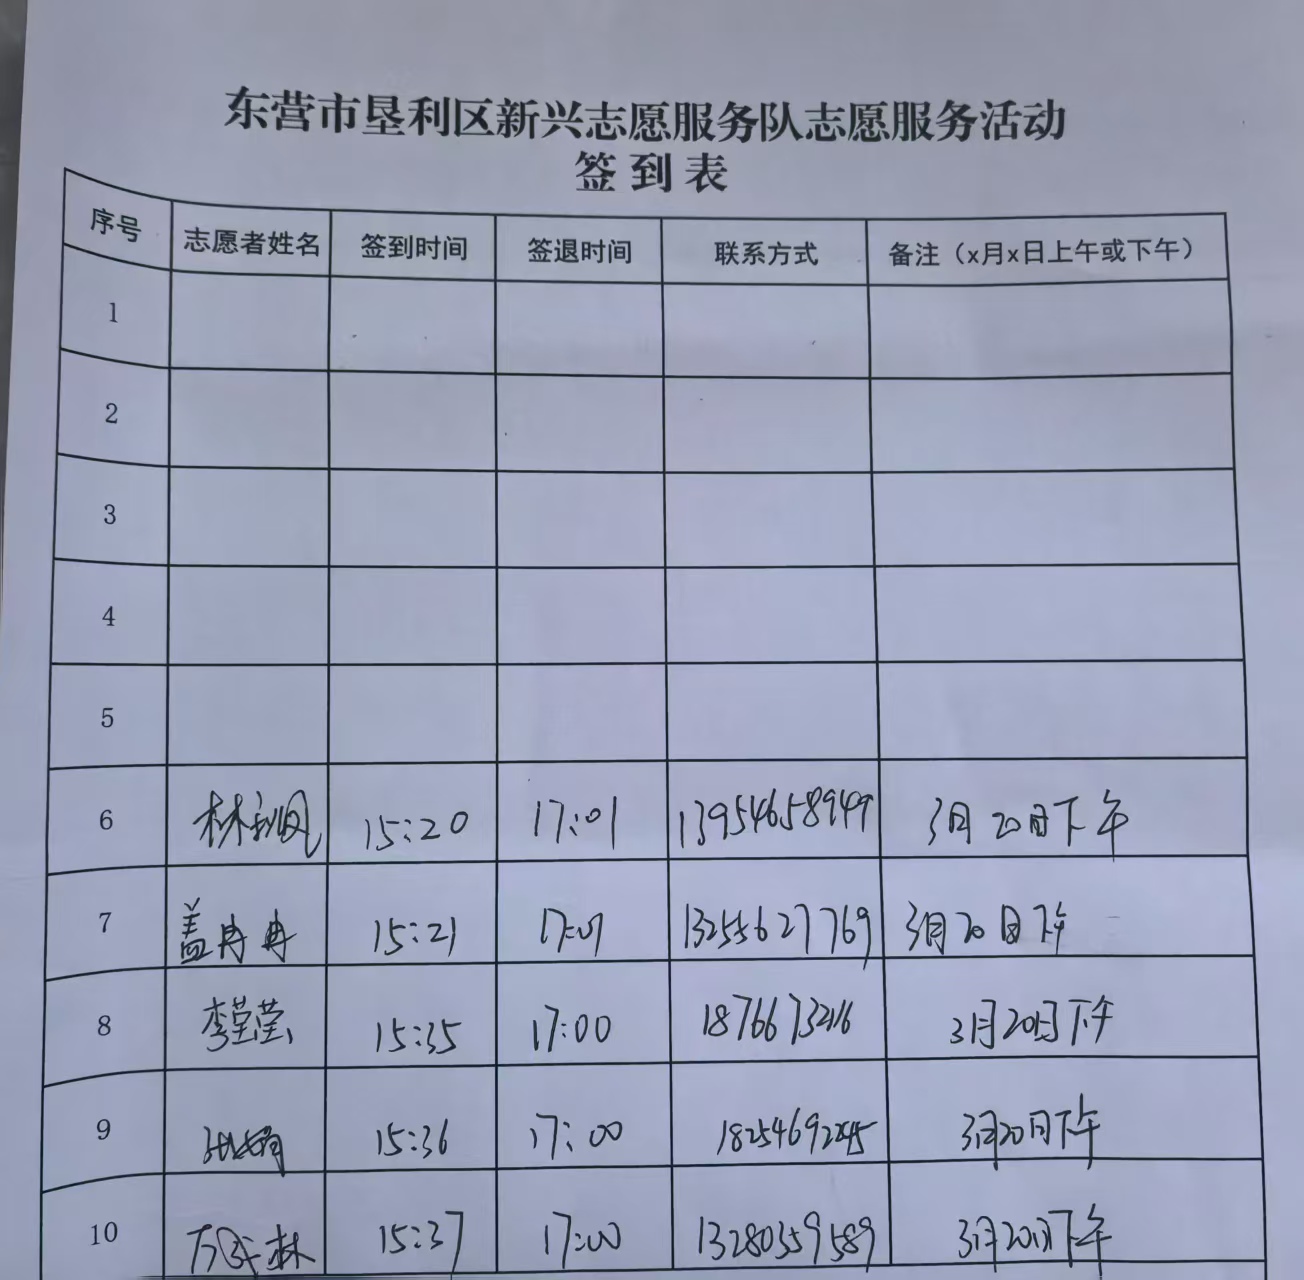 东营市垦利区新兴志愿服务队志愿服务活动
签到表
序号 志愿者姓名 签到时间 签退时间 联系方式 备注（x月x日上午或下午）
1
2
3
4
5
6 林利凤 15:20 17:01 13954658949 3月20日下午
7 盖冉冉 15:21 17:01 13255627769 3月20日下午
8 李莹莹 15:35 17:00 18766732116 3月20日下午
9 15:36 17:00 3月20日下午
10 15:37 17:00 13280359589 3月20日下午